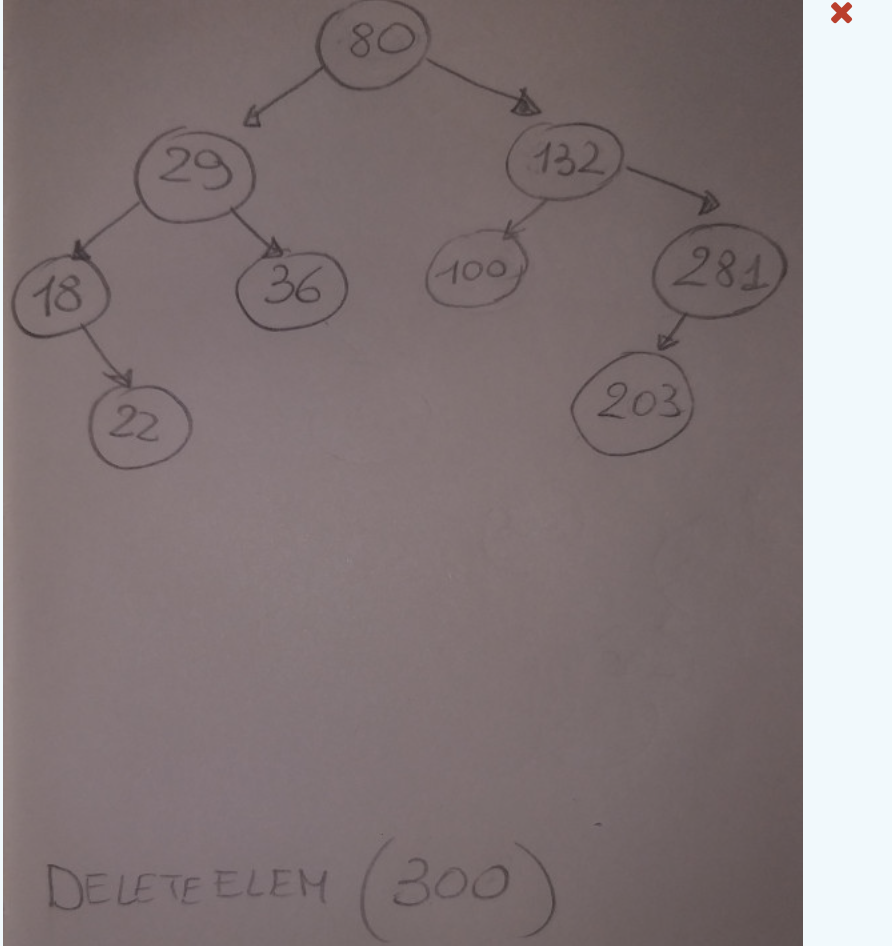 80
29 132
18 36 100 281
22 203
DELETE ELEM (300)